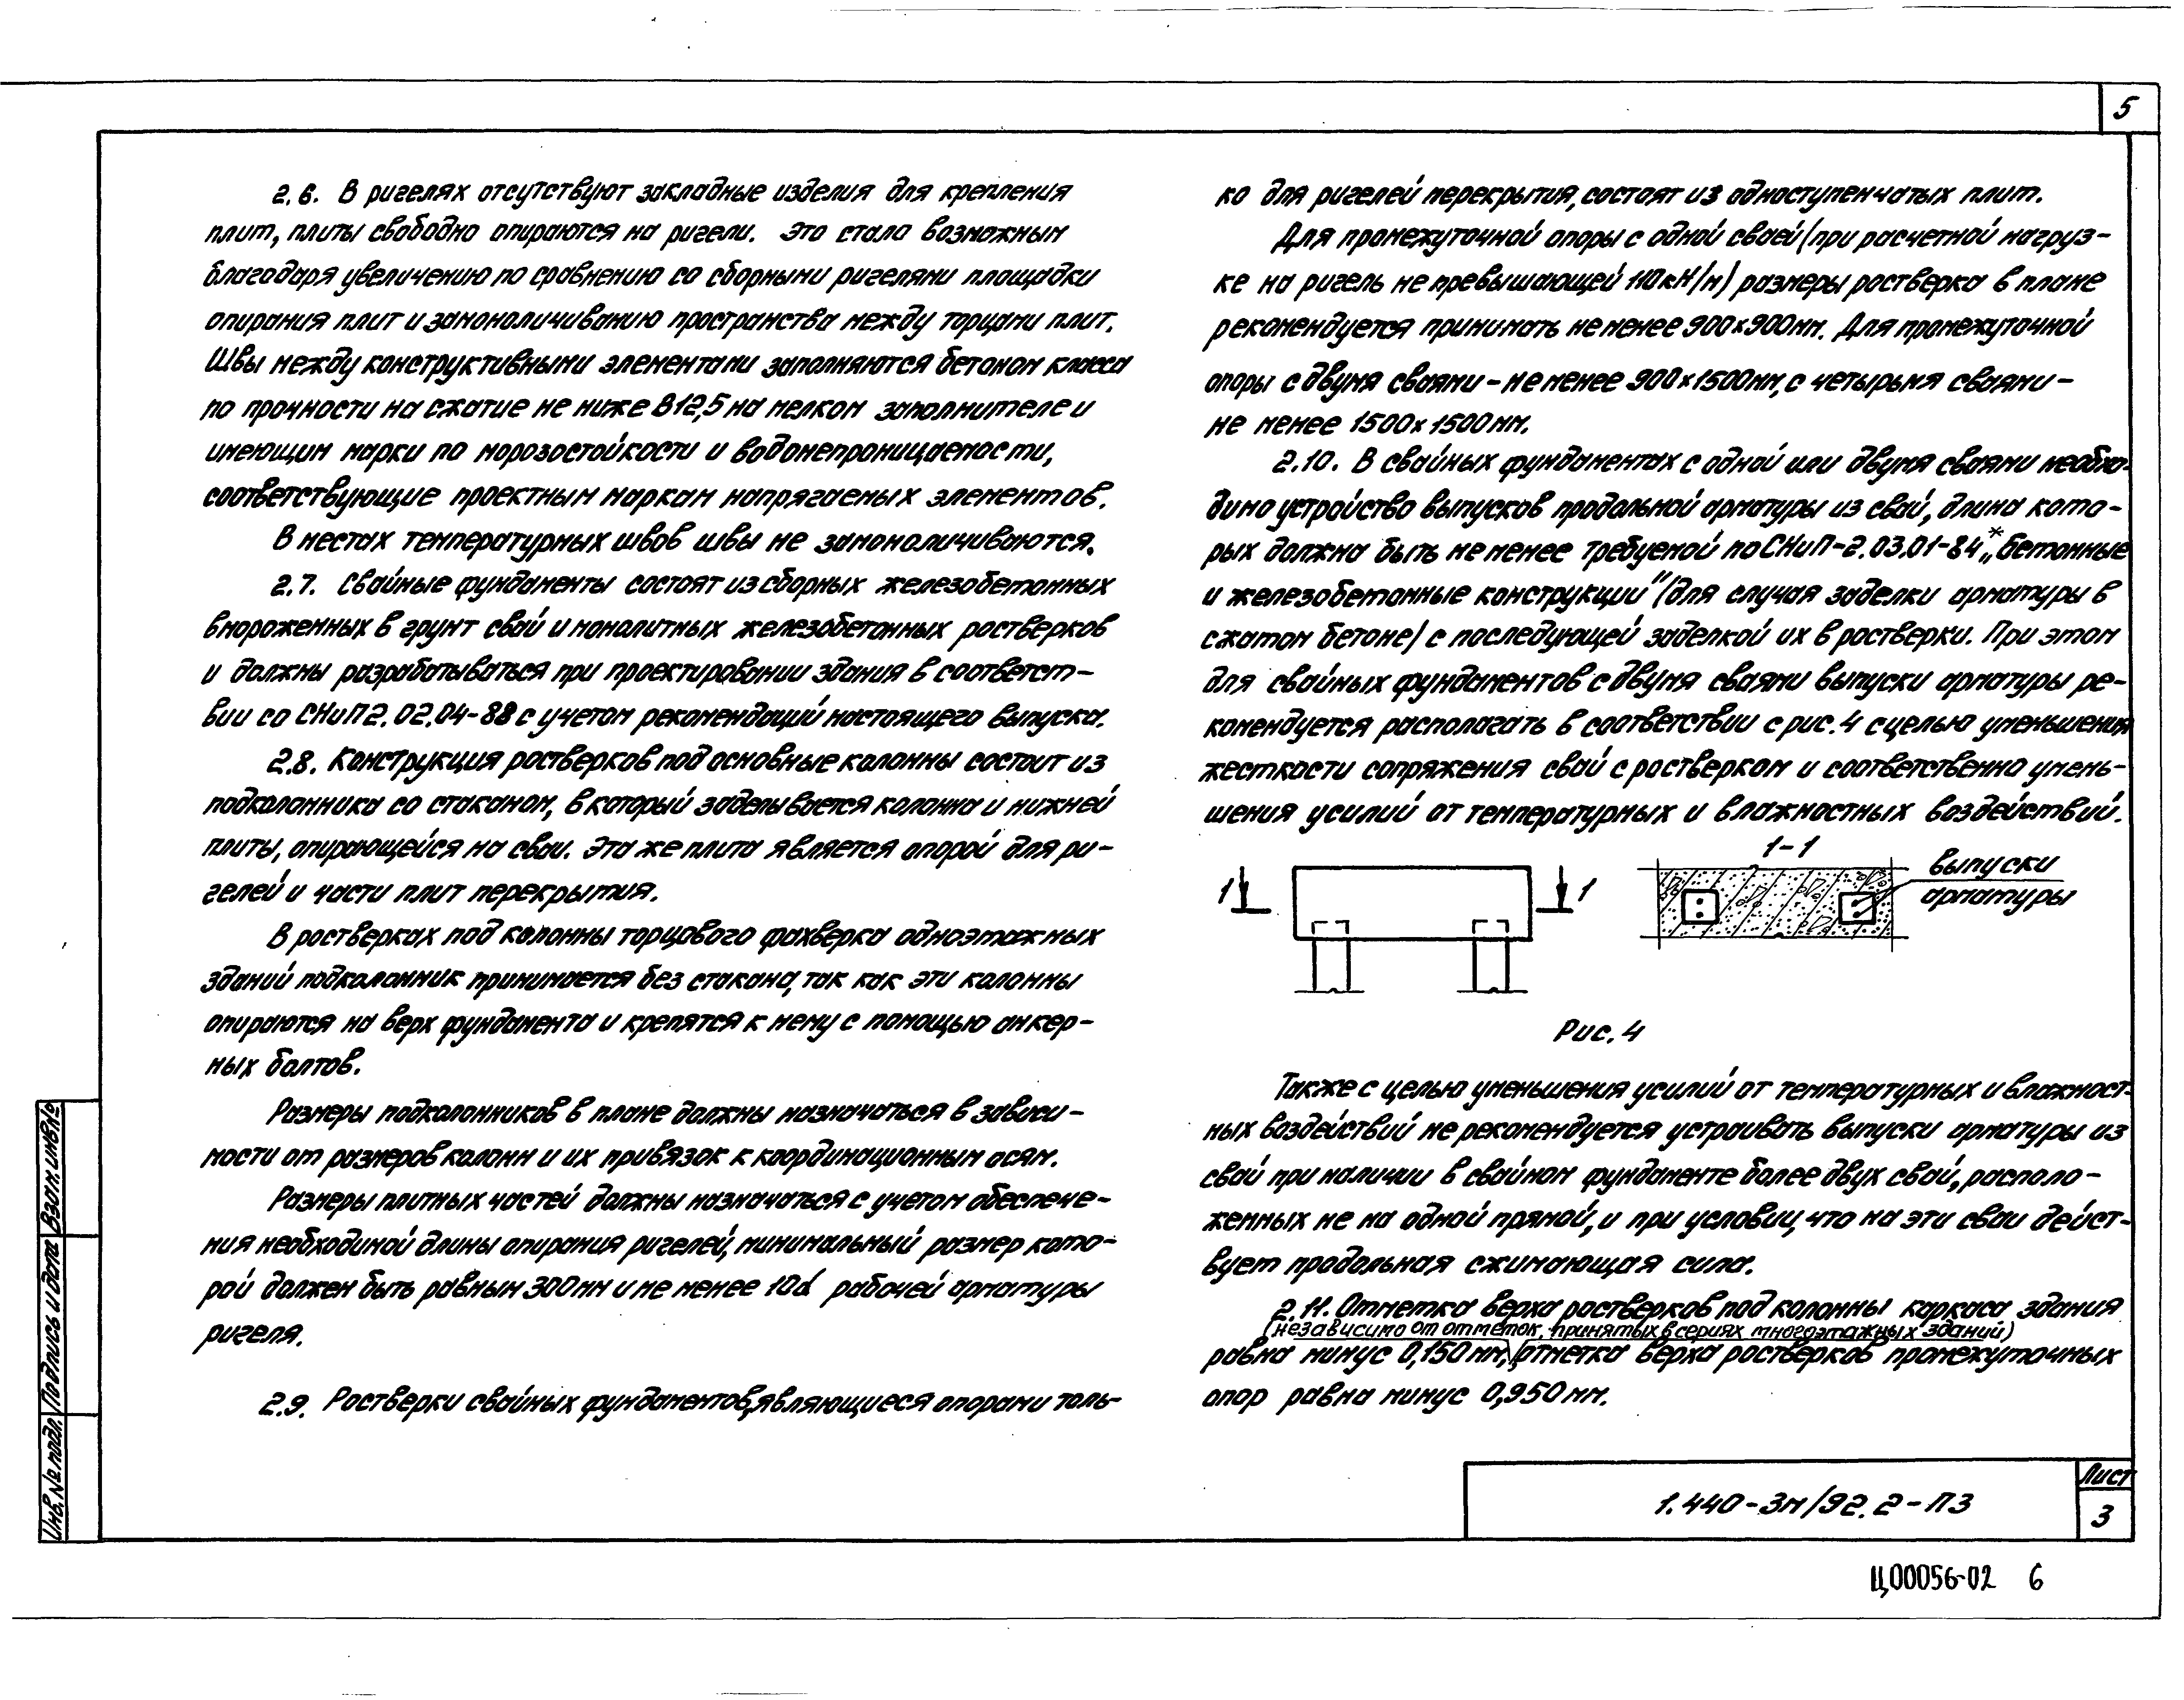 5
2.6. В ригелях отсутствуют закладные изделия для крепления
плит, плиты свободно опираются на ригели. Это стало возможным
благодаря увеличению по сравнению со сборными ригелями площадки
опирания плит и замоноличиванию пространства между торцами плит.
Швы между конструктивными элементами заполняются бетоном класса
по прочности на сжатие не ниже В12,5 на мелком заполнителе и
имеющим марки по морозостойкости и водонепроницаемости,
соответствующие проектным маркам напрягаемых элементов.
В местах температурных швов швы не замоноличиваются.
2.7. Свайные фундаменты состоят из сборных железобетонных
вмороженных в грунт свай и монолитных железобетонных ростверков
и должны разрабатываться при проектировании здания в соответст-
вии со СНиП 2.02.04-88 с учетом рекомендаций настоящего выпуска.
2.8. Конструкция ростверков под основные колонны состоит из
подколонника со стаканом, в который заделывается колонна и нижней
плиты, опирающейся на сваи. Эта же плита является опорой для ри-
гелей и части плит перекрытия.
В ростверках под колонны торцового фахверка одноэтажных
зданий подколонник принимается без стакана, так как эти колонны
опираются на верх фундамента и крепятся к нему с помощью анкер-
ных болтов.
Размеры подколонников в плане должны назначаться в зависи-
мости от размеров колонн и их привязок к координационным осям.
Размеры плитных частей должны назначаться с учетом обеспече-
ния необходимой длины опирания ригелей, минимальный размер кото-
рой должен быть равным 300мм и не менее 10d рабочей арматуры
ригеля.
2.9. Ростверки свайных фундаментов, являющиеся опорами толь-
ко для ригелей перекрытия, состоят из одноступенчатых плит.
Для промежуточной опоры с одной сваей (при расчетной нагруз-
ке на ригель не превышающей 110кН/м) размеры ростверка в плане
рекомендуется принимать не менее 900х900мм. Для промежуточной
опоры с двумя сваями - не менее 900х1500мм, с четырьмя сваями -
не менее 1500х1500мм.
2.10. В свайных фундаментах с одной или двумя сваями необхо-
димо устройство выпусков продольной арматуры из свай, длина кото-
рых должна быть не менее требуемой по СНиП-2.03.01-84* „Бетонные
и железобетонные конструкции" (для случая заделки арматуры в
сжатом бетоне) с последующей заделкой их в ростверки. При этом
для свайных фундаментов с двумя сваями выпуски арматуры ре-
комендуется располагать в соответствии с рис. 4 с целью уменьшения
жесткости сопряжения свай с ростверком и соответственно умень-
шения усилий от температурных и влажностных воздействий.
1 1
1-1
выпуски
арматуры
Рис. 4
Также с целью уменьшения усилий от температурных и влажност-
ных воздействий не рекомендуется устраивать выпуски арматуры из
свай при наличии в свайном фундаменте более двух свай, располо-
женных не на одной прямой, и при условии, что на эти сваи дейст-
вует продольная сжимающая сила.
2.11. Отметка верха ростверков под колонны каркаса здания
(независимо от отметок, принятых в сериях многоэтажных зданий)
равна минус 0,150 мм, отметка верха ростверков промежуточных
опор равна минус 0,950 мм.
Инв. № подл. Подпись и дата Взам. инв. №
1.440-3м/92.2-ПЗ
Лист
3
Ц00056-02 6